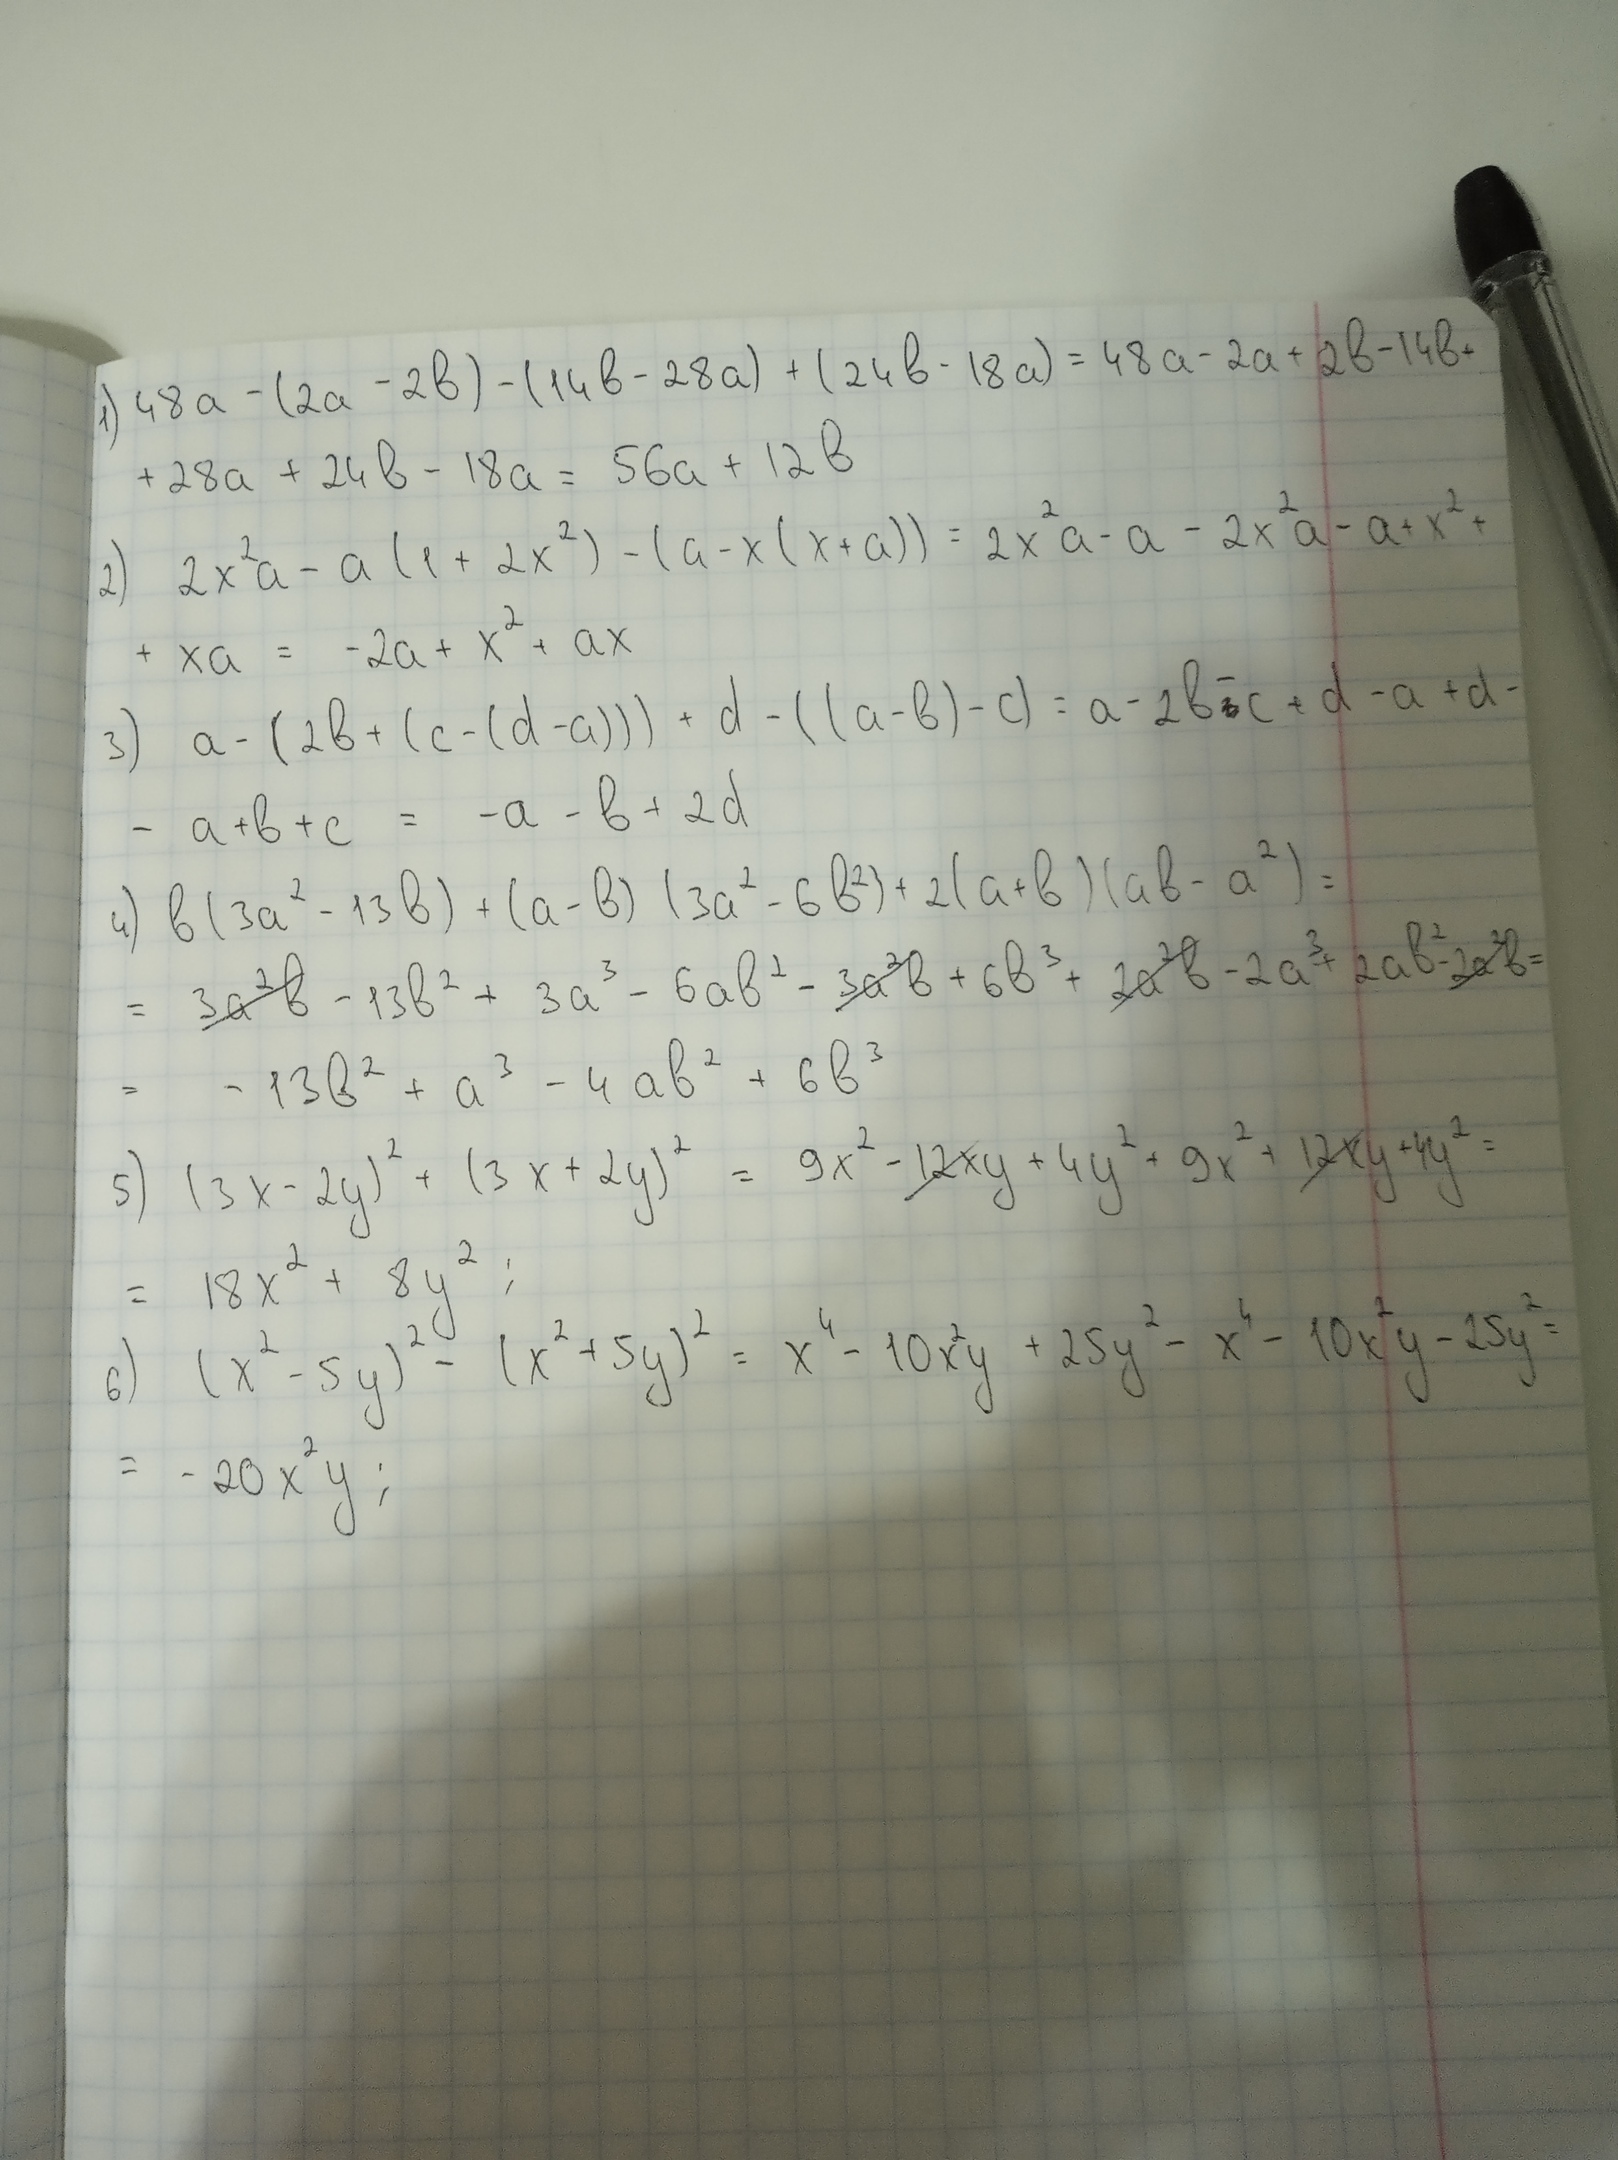 1) 48a - (2a - 2b) - (14b - 28a) + (24b - 18a) = 48a - 2a + 2b - 14b +
+ 28a + 24b - 18a = 56a + 12b
2) 2x²a - a (1 + 2x²) - (a - x (x + a)) = 2x²a - a - 2x²a - a + x² +
+ xa = -2a + x² + ax
3) a - (2b + (c - (d - a))) + d - ((a - b) - c) = a - 2b - c + d - a + d -
- a + b + c = -a - b + 2d
4) b (3a² - 13b) + (a - b) (3a² - 6b²) + 2(a + b) (ab - a²) =
= 3a²b - 13b² + 3a³ - 6ab² - 3a²b + 6b³ + 2a²b - 2a³ + 2ab² - 2a²b =
= -13b² + a³ - 4ab² + 6b³
5) (3x - 2y)² + (3x + 2y)² = 9x² - 12xy + 4y² + 9x² + 12xy + 4y² =
= 18x² + 8y² ;
6) (x² - 5y)² - (x² + 5y)² = x⁴ - 10x²y + 25y² - x⁴ - 10x²y - 25y² =
= -20x²y ;